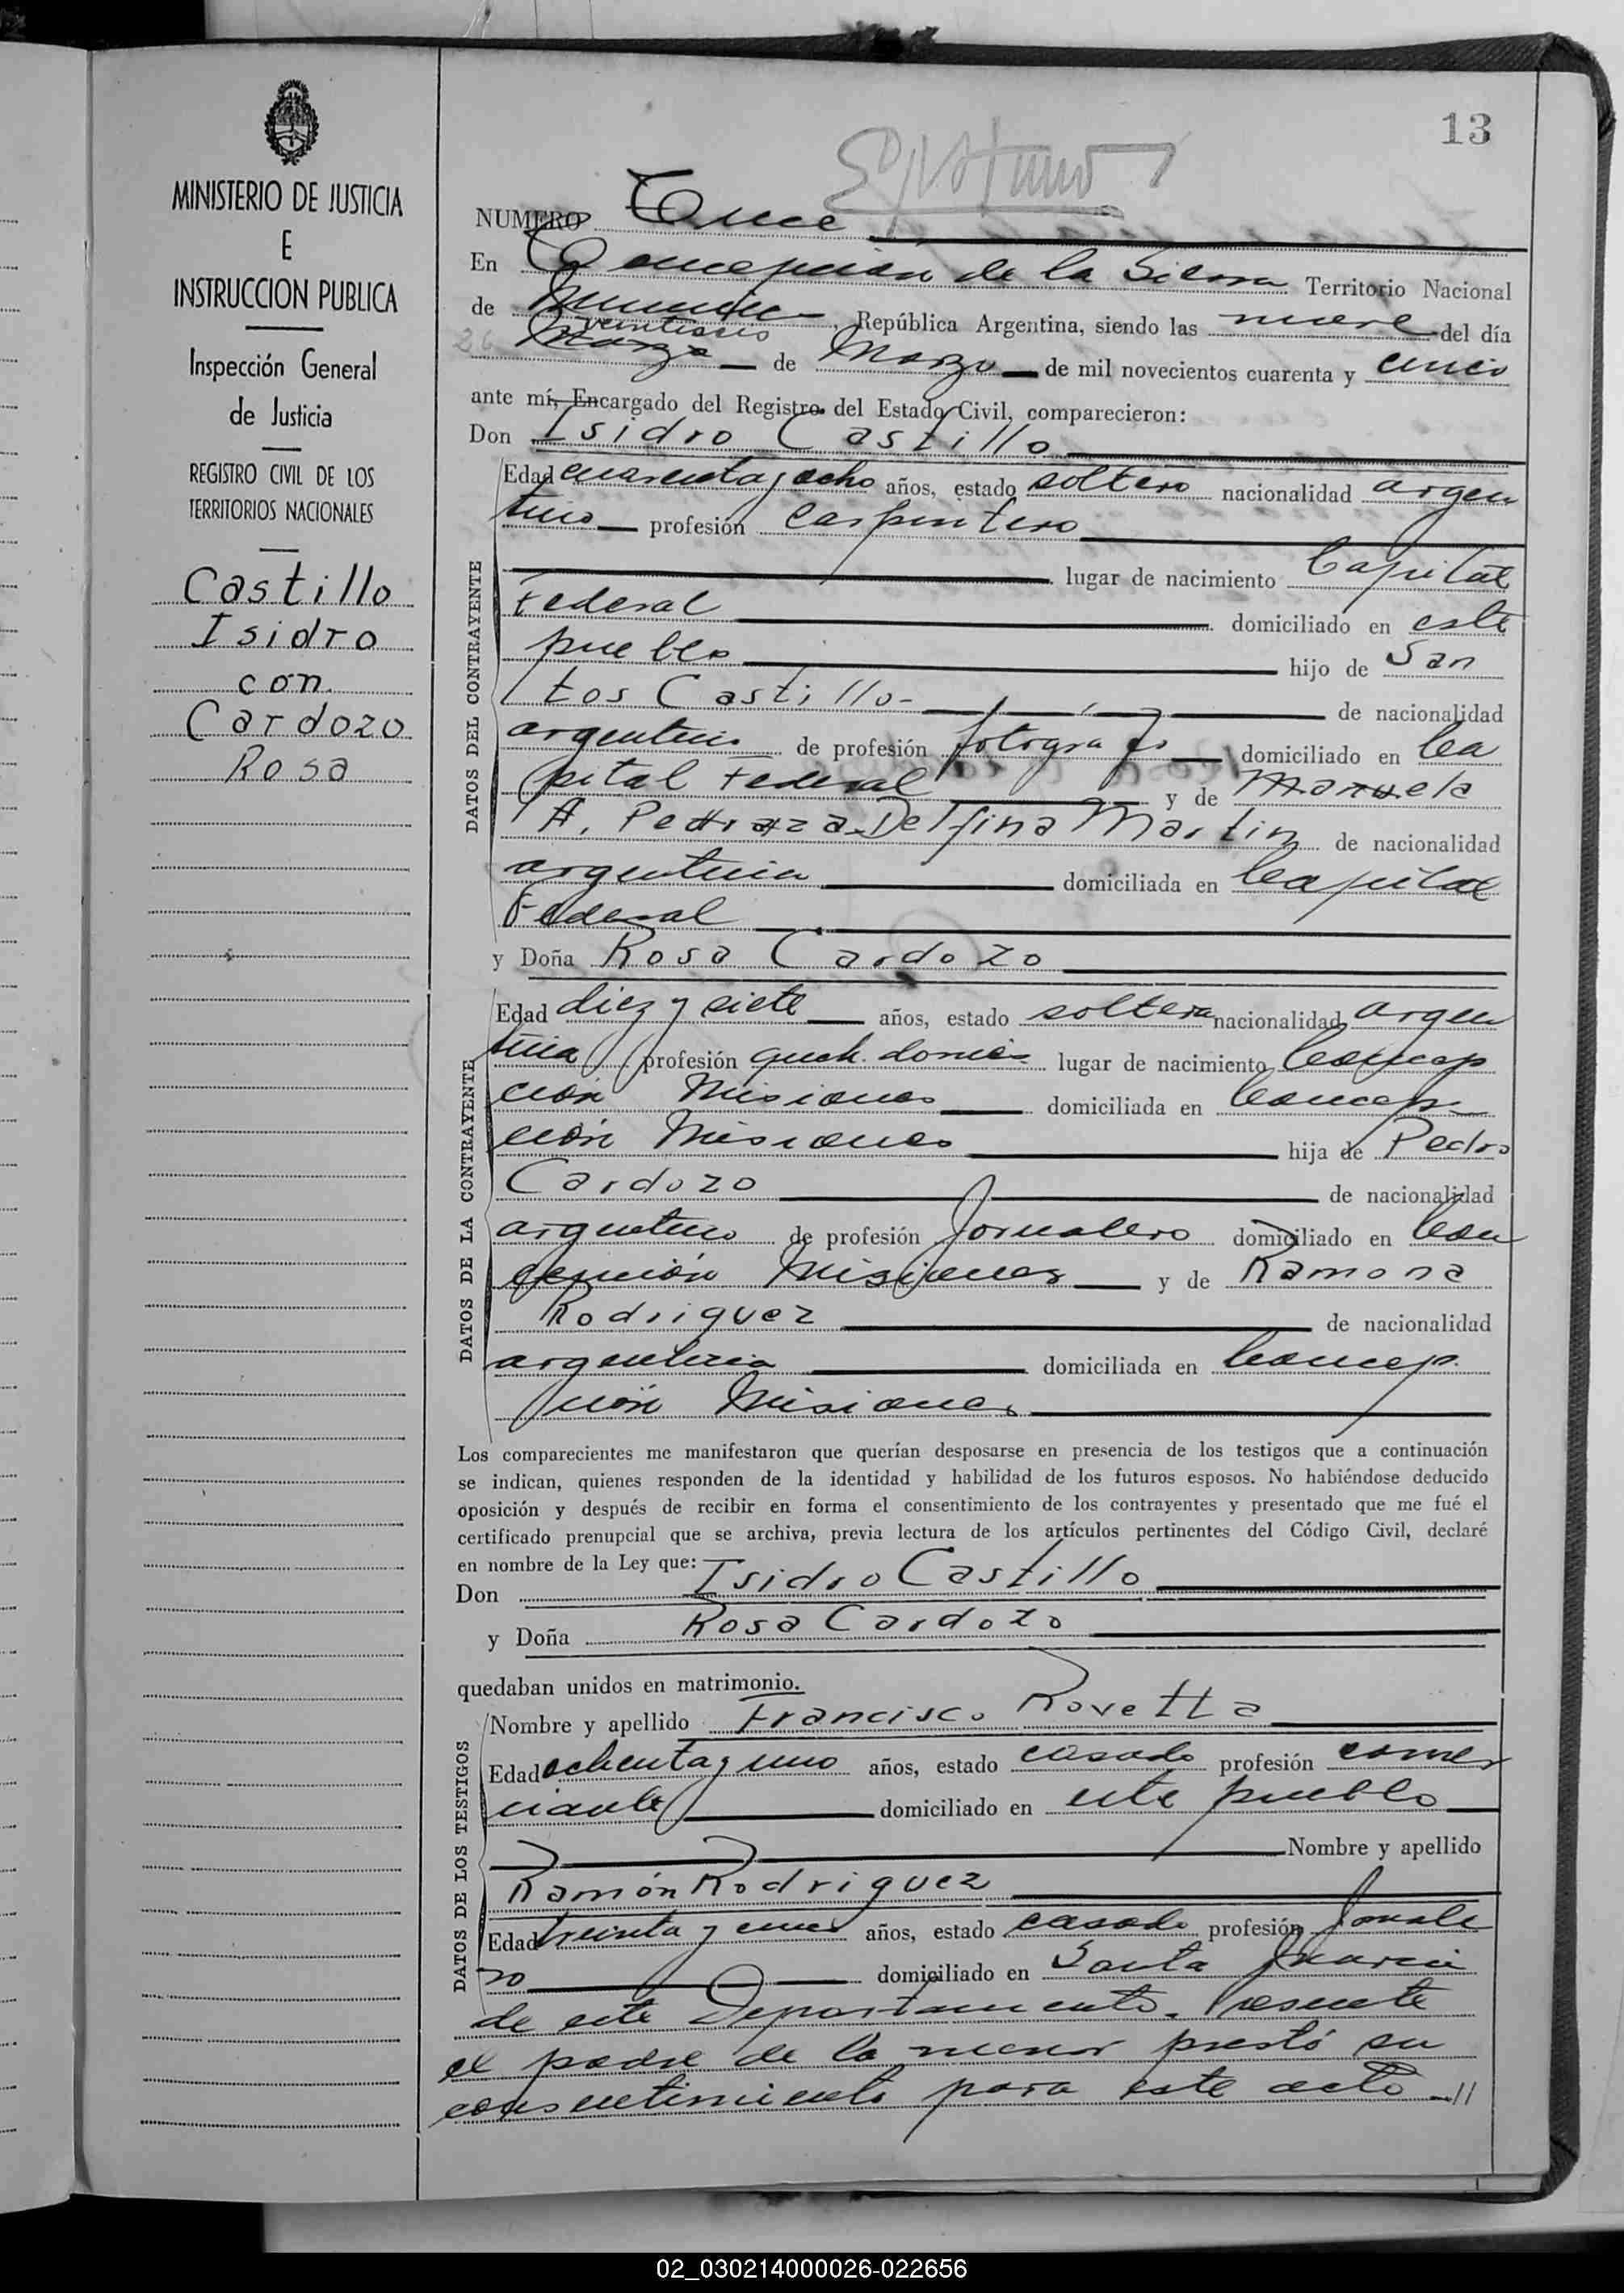 MINISTERIO DE JUSTICIA
E
INSTRUCCION PUBLICA
Inspección General
de Justicia
REGISTRO CIVIL DE LOS
TERRITORIOS NACIONALES
Castillo
Isidro
con
Cardozo
Rosa
13
NUMERO Once
En Concepción de la Sierra Territorio Nacional
de Misiones, República Argentina, siendo las nueve del día
26 veintiseis
Marzo de Marzo de mil novecientos cuarenta y cinco
ante mí, Encargado del Registro del Estado Civil, comparecieron:
Don Isidro Castillo
Edad cuarenta y ocho años, estado soltero nacionalidad argen
tino profesión carpintero
lugar de nacimiento Capital
Federal domiciliado en este
pueblo hijo de San
tos Castillo- de nacionalidad
argentino de profesión fotografo domiciliado en Ca
pital Federal y de Manuela
A. Pedraza Delfina Martin de nacionalidad
argentina domiciliada en Capital
Federal
y Doña Rosa Cardozo
Edad diez y siete años, estado soltera nacionalidad argen
tina profesión queh. domes lugar de nacimiento Concep
ción Misiones domiciliada en Concep
ción Misiones hija de Pedro
Cardozo de nacionalidad
argentino de profesión Jornalero domiciliado en Con
cepción Misiones y de Ramona
Rodriguez de nacionalidad
argentina domiciliada en Concep
ción Misiones
DATOS DEL CONTRAYENTE
DATOS DE LA CONTRAYENTE
Los comparecientes me manifestaron que querían desposarse en presencia de los testigos que a continuación
se indican, quienes responden de la identidad y habilidad de los futuros esposos. No habiéndose deducido
oposición y después de recibir en forma el consentimiento de los contrayentes y presentado que me fué el
certificado prenupcial que se archiva, previa lectura de los artículos pertinentes del Código Civil, declaré
en nombre de la Ley que:
Don Isidro Castillo
y Doña Rosa Cardozo
quedaban unidos en matrimonio.
Nombre y apellido Francisco Rovetta
Edad ochenta y uno años, estado casado profesión comer
ciante domiciliado en este pueblo
Nombre y apellido
Ramón Rodriguez
Edad treinta y años, estado casado profesión Jornale
ro domiciliado en Santa Maria
DATOS DE LOS TESTIGOS
de este Departamento. Presente
el padre de la menor prestó su
consentimiento para este acto.-//
02_030214000026-022656